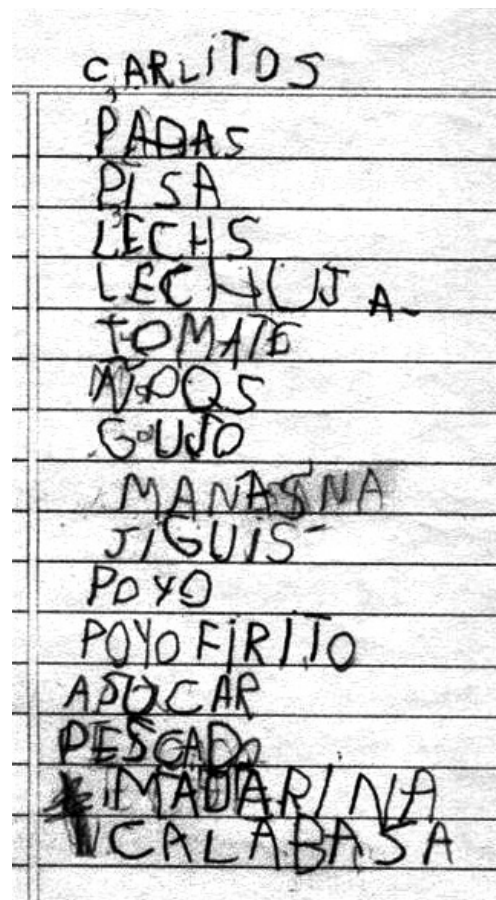 CARLITOS
PAPAS
PISA
LECHS
LECHUJA
TOMATE
ÑOQS
GUJO
MANASNA
JIGUIS
POYO
POYO FIRITO
ASUCAR
PESCADO
MADARINA
CALABASA